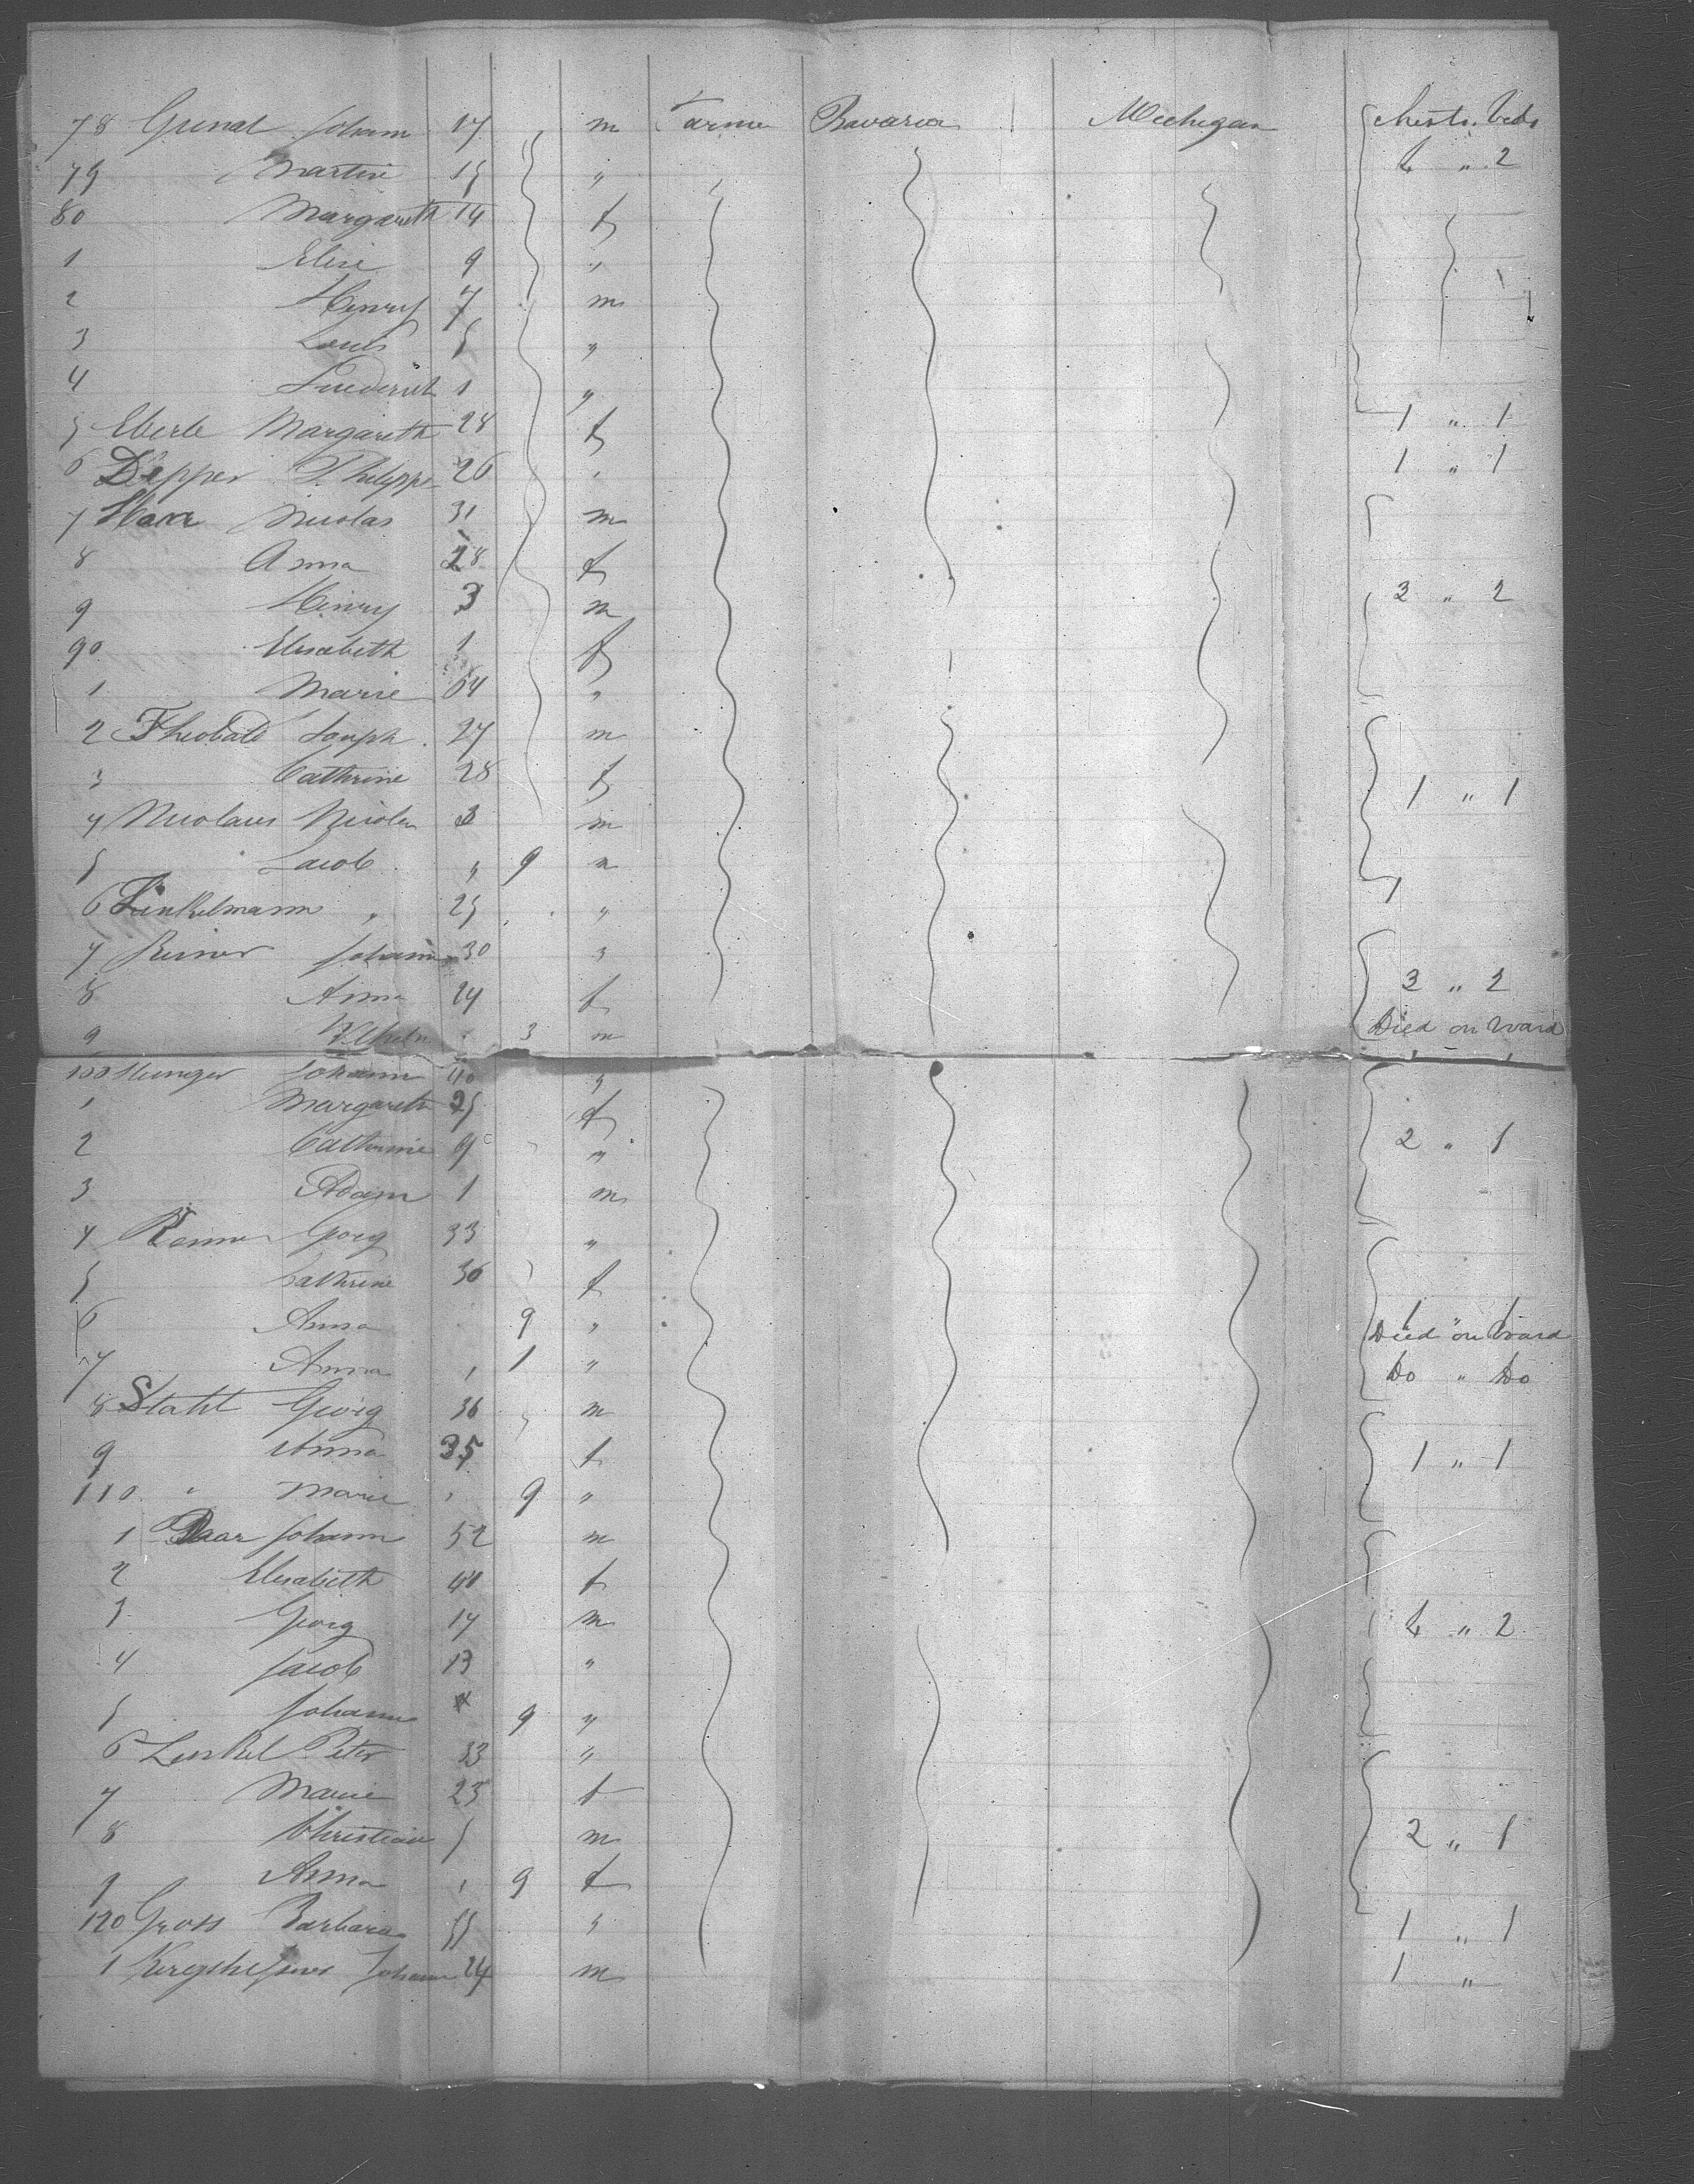 78 Grenat Johann 17 " m Farmer Bavaria Michigan Chests. Beds
79 Martin 15 " 4 " 2
80 Margareth 14 f
1 Elise 9 "
2 Henry 7 m
3 Louis 5 "
4 Friederich 1 "
5 Eberle Margareth 28 f 1 " 1
6 Depper Philippe 26 " 1 " 1
7 Harr Nicolas 31 m
8 Anna 28 f
9 Henry 3 m 3 " 2
90 Elisabeth 1 f
1 Marie 64 "
2 Theobald Joseph 27 m
3 Cathrine 28 f 1 " 1
4 Nicolaus Nicolas 3 m
5 Jacob " 9 m
6 Finkelmann " 25 " 1
7 Reiner Johann 30 "
8 Anna 24 f 3 " 2
9 3 m Died on Board
100 Johann 40 "
1 Margareth 25 f
2 Cathrine 9 " 2 " 1
3 Adam 1 m
4 Georg 33 "
5 Cathrine 36 f
6 Anna 9 " 1 " 1 Died on Board
7 Anna " 1 " Do " Do
8 Stahl Georg 36 m
9 Anna 35 f 1 " 1
110 " Marie " 9 "
1 Johann 52 m
2 Elisabeth 40 f
3 Georg 14 m 4 " 2
4 Jacob 13 "
5 Johann 9 "
6 Lenkel Peter 33 "
7 Marie 23 f
8 Christian 5 m 2 " 1
9 Anna " 9 f
120 Gross Barbara 55 " 1 " 1
1 Johann 24 m 1 "